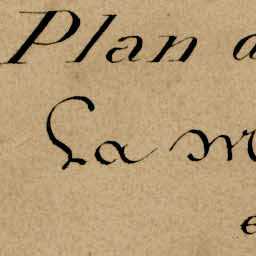 Plan d
La M
e